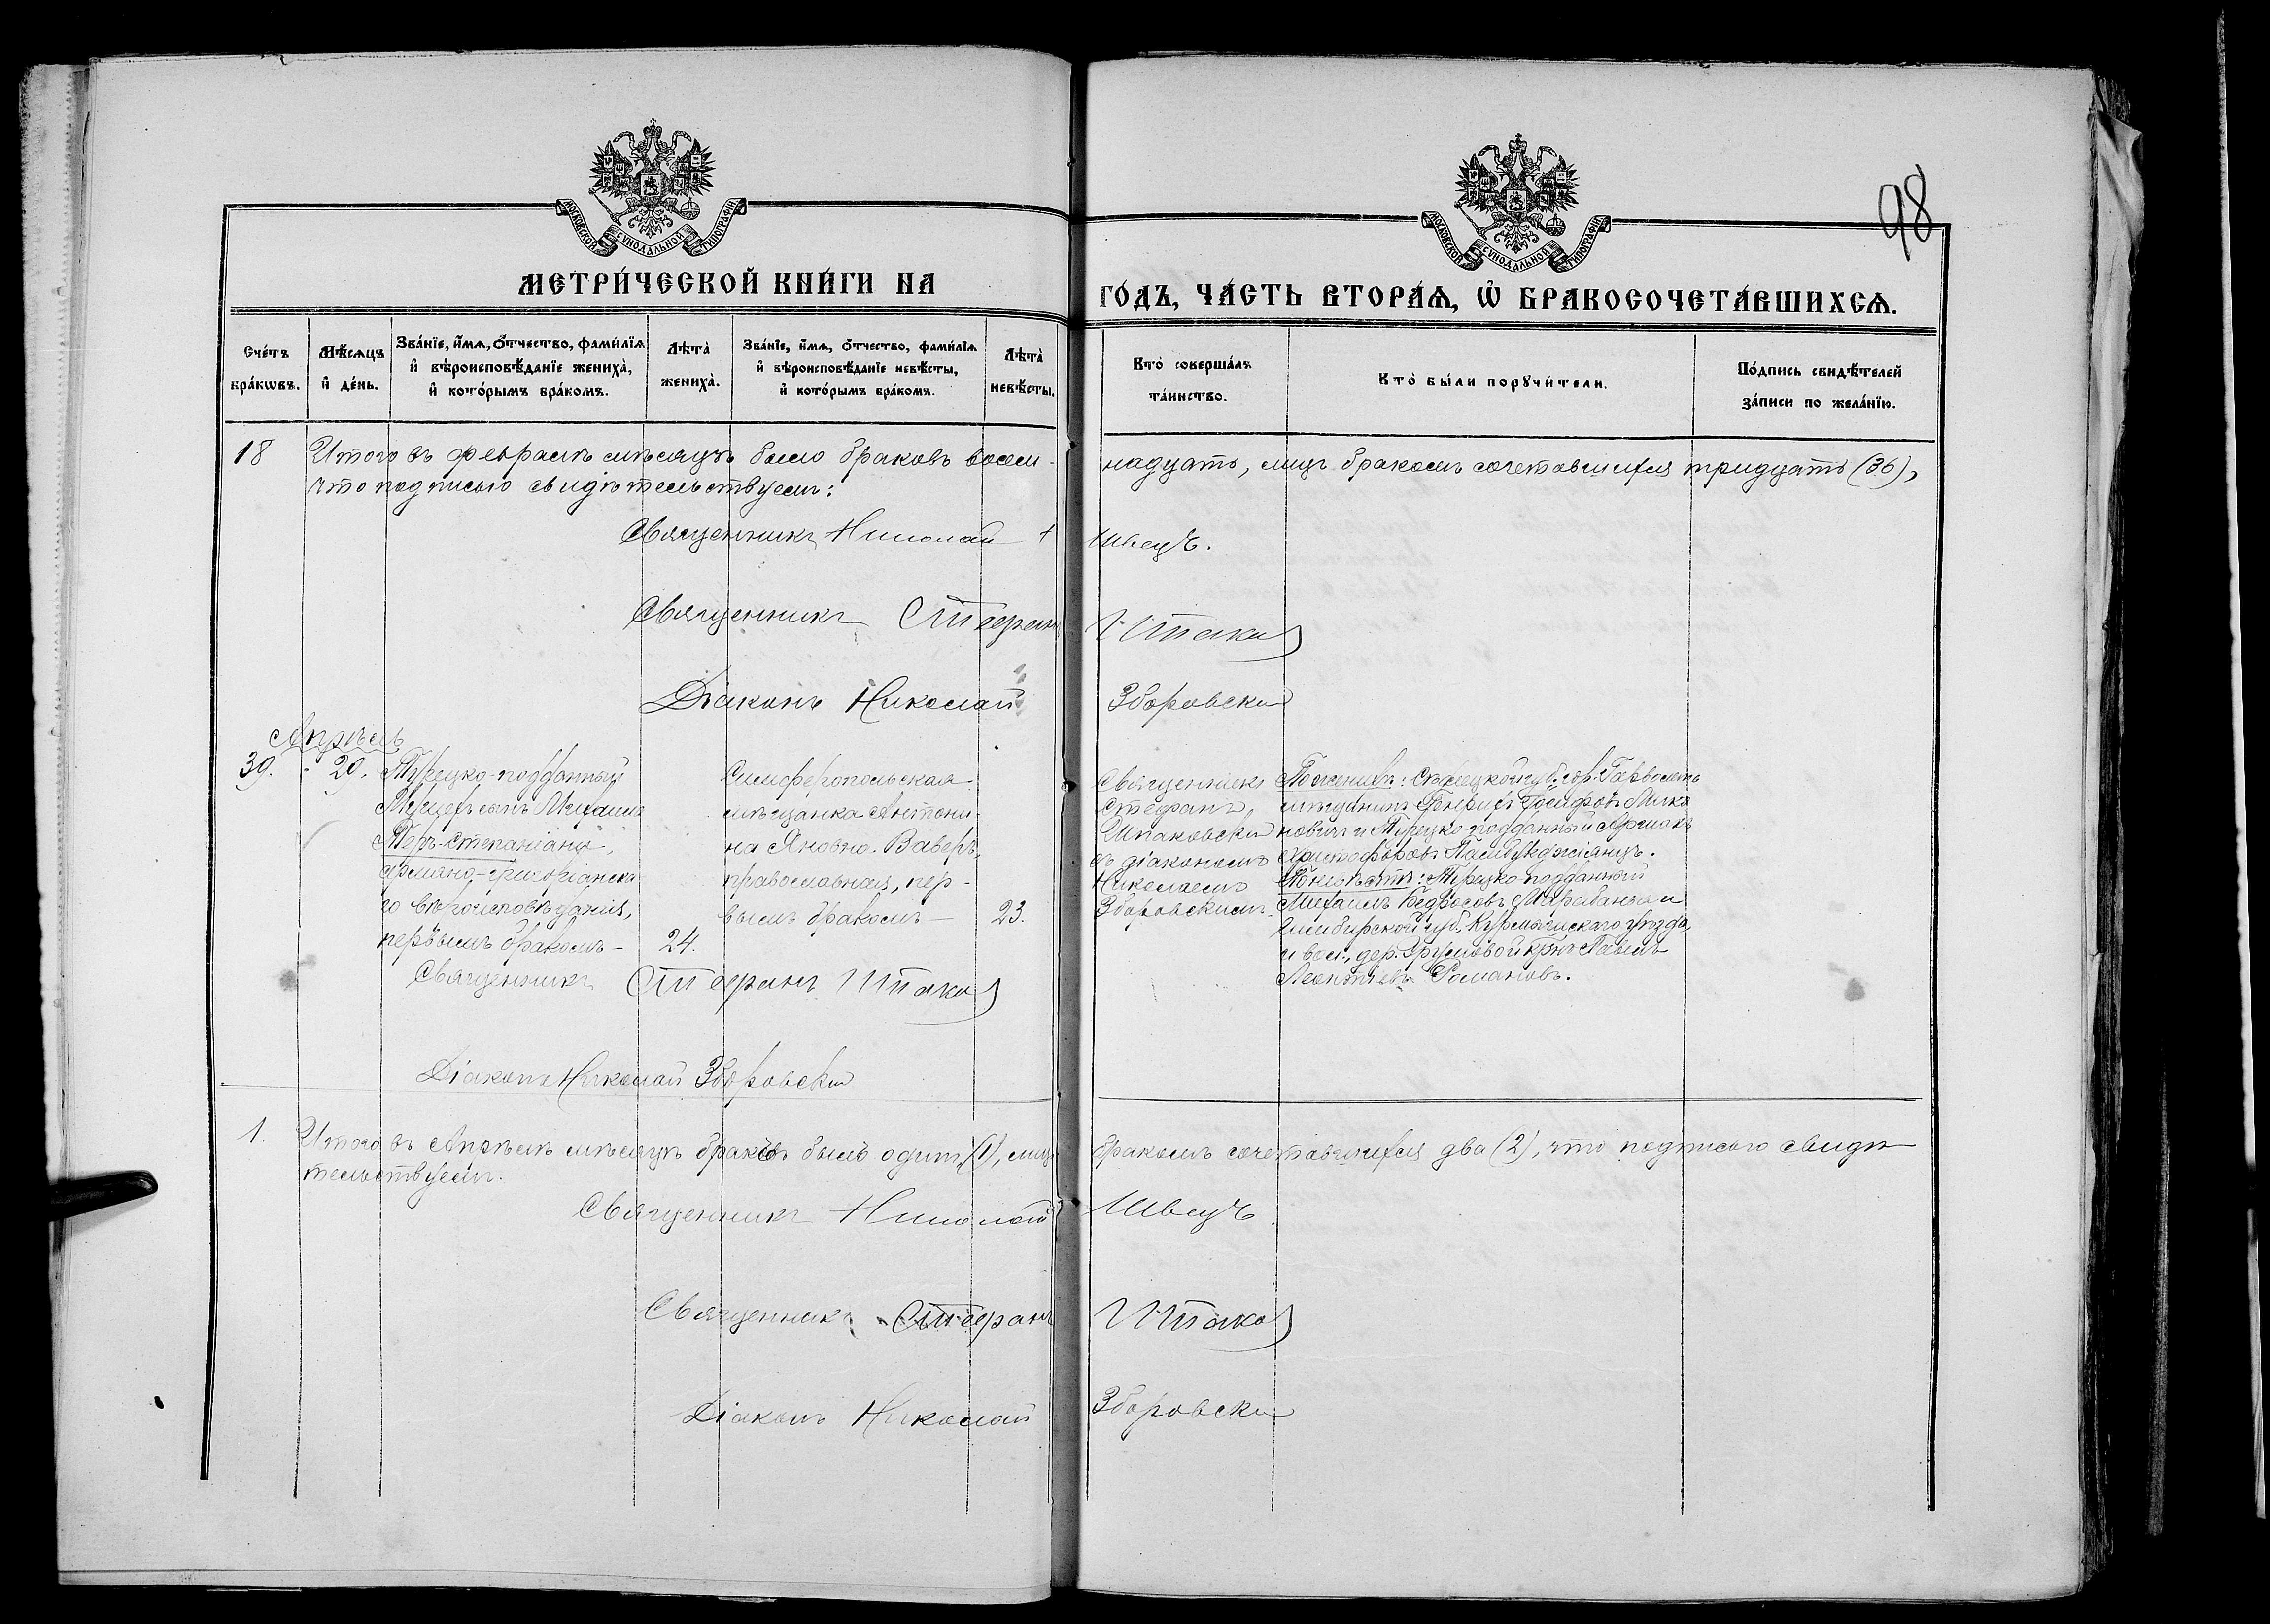 98
МОСКОВСКОЙ СѴНОДАЛЬНОЙ ТИПОГРАФІИ
МОСКОВСКОЙ СѴНОДАЛЬНОЙ ТИПОГРАФІИ
МЕТРИ́ЧЕСКОЙ КНИ́ГИ НА ГО́ДЪ, ЧА́СТЬ ВТОРА́Ѧ, Ѽ БРАКОСОЧЕТА́ВШИХСѦ.
Сче́тъ бра́кѡвъ.
Мѣ́сѧцъ и҆ де́нь.
Зва́нїе, и҆́мѧ, ѻ҆́тчество, фами́лїѧ и҆ вѣроисповѣ́данїе жениха̀, и҆ кото́рымъ бра́комъ.
Лѣта̀ жениха̀.
Зва́нїе, и҆́мѧ, ѻ҆́тчество, фами́лїѧ и҆ вѣроисповѣ́данїе невѣ́сты, и҆ кото́рымъ бра́комъ.
Лѣта̀ невѣ́сты.
Кто̀ соверша́лъ та́инство.
Кто̀ бы́ли порꙋчи́тели.
По́дпись свидѣ́телей за́писи по жела́нїю.
18 Итого въ февралѣ мѣсяцѣ было браковъ восем-надцать, лицъ бракомъ сочетавшихся тридцать (36),
что подписью свидѣтельствуемъ:
Священникъ Николай Швецъ.
Священникъ Стефанъ Шпако
Діаконъ Николай Зборовскій
Апрѣль
39. 29.
Турецко-подданный
сынъ Михаилъ
Теръ-Степаніанцъ,
армяно-григоріанска-
го вѣроисповѣданія,
первымъ бракомъ – 24.
Симферопольская
мѣщанка Антони-
на Янов Ваверъ,
православная, пер-
вымъ бракомъ – 23.
Священникъ
Стефанъ
Шпаковскій
съ діакономъ
Николаемъ
Зборовскимъ.
По женихѣ: Сѣдлецкой губ. гор. Гарволинъ
мѣщанинъ Генрихъ Іосифовъ
новичъ и Турецко подданный
Христофоровъ
По невѣстѣ: Турецко подданный
Михаилъ Бедросовъ и
Симбирской губ. Курмышскаго уѣзда,
и вол., дер. кр-нъ Павелъ
Леонтіевъ Романовъ.
Священникъ Стефанъ Шпако
Діаконъ Николай Зборовскій
1. Итого въ Апрѣлѣ мѣсяцѣ браковъ былъ одинъ (1), лицъ бракомъ сочетавшихся два (2), что подписью свидѣ-
тельствуемъ.
Священникъ Николай Швецъ
Священникъ Стефанъ Шпако
Діаконъ Николай Зборовскій